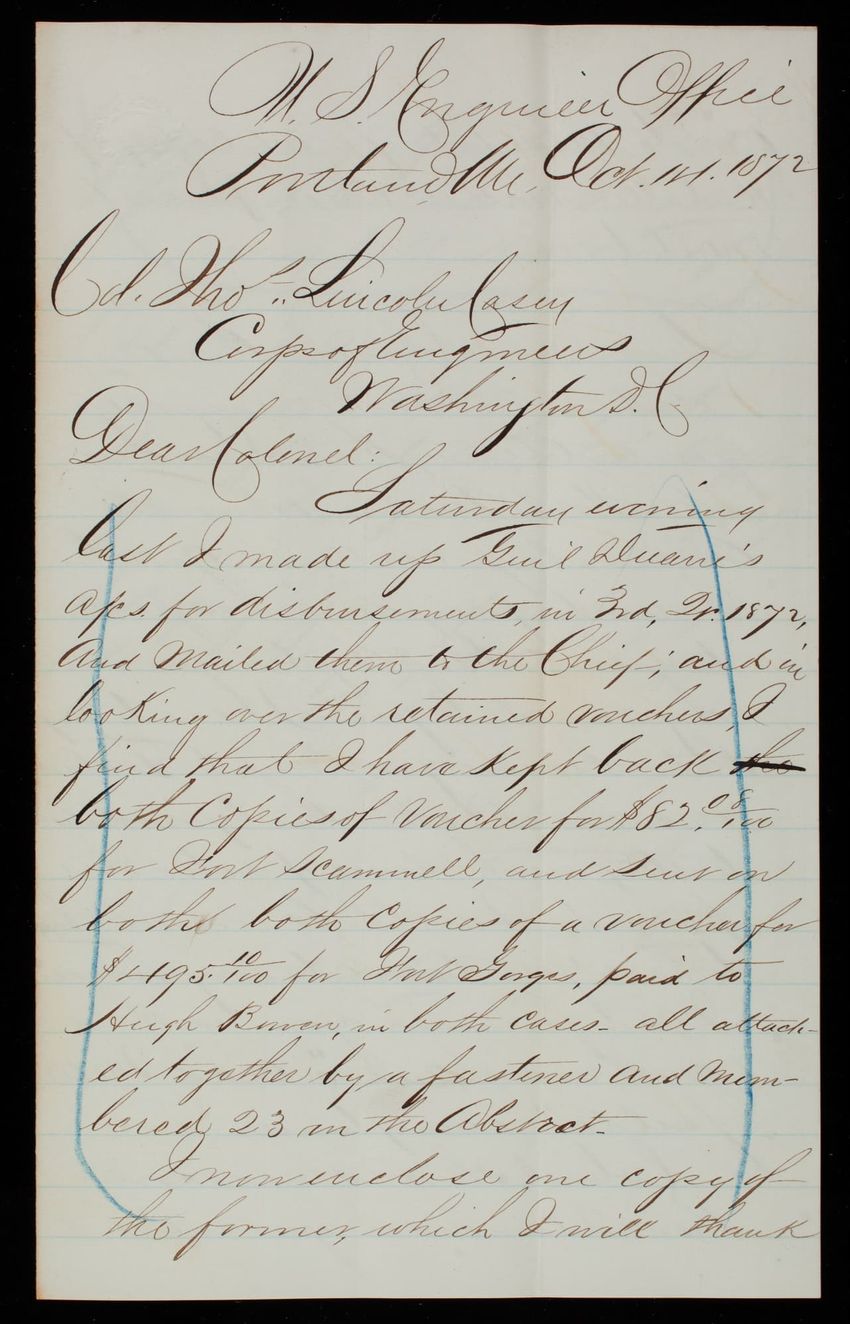 U. S. Engineer Office
Portland, Me. Oct. 14. 1872
Col. Thos. Lincoln Casey
Corps of Engineers
Washington D. C.
Dear Colonel:
Saturday evening
last I made up Genl Duane's
a/cs. for disbursements, in 3rd, Qr. 1872,
and mailed them to the Chief; and in
looking over the retained vouchers, I
find that I have kept back the
both Copies of Voucher for $82.08/100
for Fort Scammell, and sent on
both both Copies of a voucher for
$495.10/100 for Fort Gorges, paid to
Hugh Bowen, in both cases- all attach-
ed together by a fastener and num-
bered 23 in the Abstract-
I now enclose one copy of
the former, which I will thank